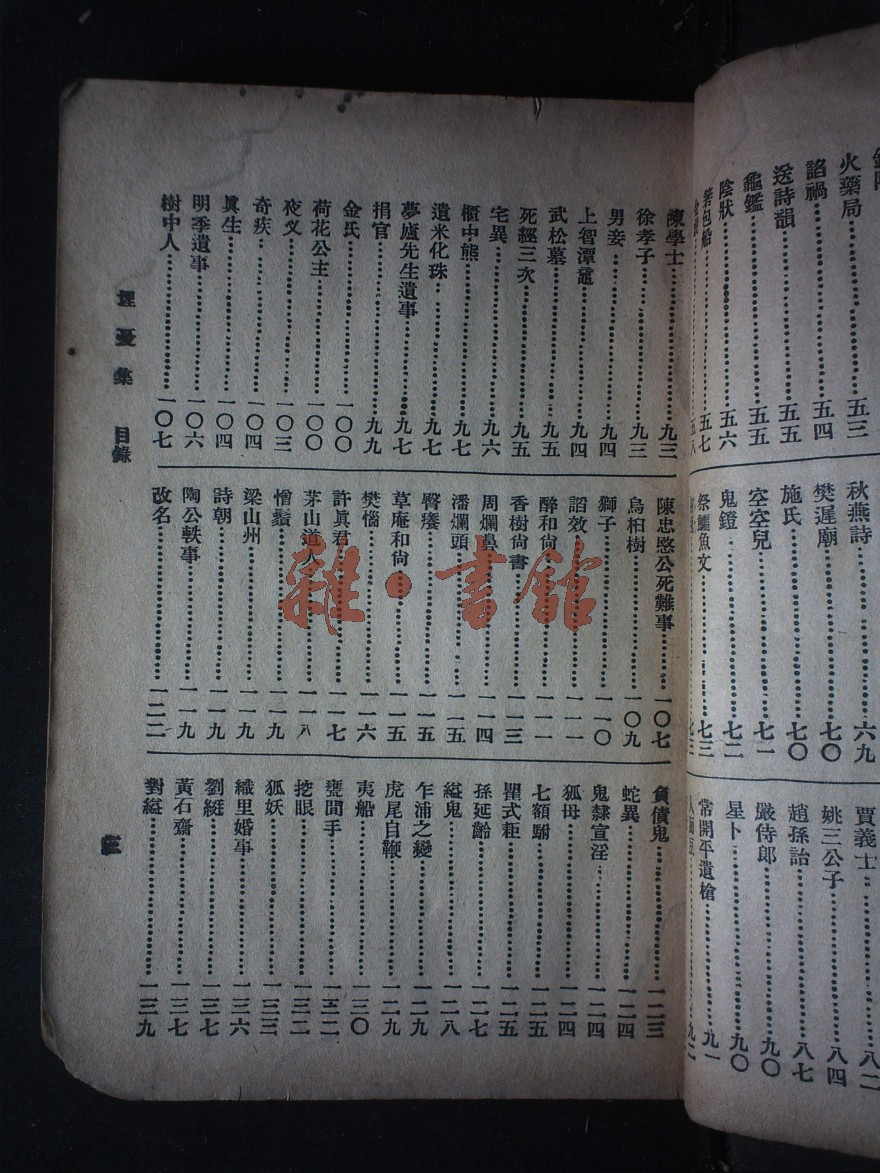 火藥局……五三
諂禍……五四
送詩韻……五五
龜鑑……五五
陰狀……五六
箬包船……五七
秋燕詩……六九
樊遲廟……七〇
施氏……七〇
空空兒……七一
鬼鐙……七二
祭鱷魚文……七三
賈義士……八二
姚三公子……八四
趙孫詒……八七
嚴侍郎……九〇
星卜……九〇
常開平遺槍……九一
陳學士……九三
徐孝子……九三
男妾……九四
上智潭黿……九四
武松墓……九五
死經三次……九五
宅異……九六
櫃中熊……九七
遺米化珠……九七
夢廬先生遺事……九七
捐官……九九
金氏……一〇〇
荷花公主……一〇〇
夜叉……一〇三
奇疾……一〇四
眞生……一〇四
明季遺事……一〇六
樹中人……一〇七
陳忠愍公死難事……一〇七
烏桕樹……一〇九
獅子……一一〇
謟效……一一一
醉和尙……一一一
香樹尙書……一一三
周爛鼻……一一四
潘爛頭……一一五
臀癢……一一五
草庵和尙……一一五
樊惱……一一六
許眞君……一一七
茅山道人……一一八
憎鬚……一一九
梁山州……一一九
詩朝……一一九
陶公軼事……一一九
改名……一二二
負債鬼……一二三
蛇異……一二四
鬼隸宣淫……一二四
狐母……一二四
七額駙……一二五
瞿式耟……一二五
孫延齡……一二七
縊鬼……一二八
乍浦之變……一二九
虎尾自鞭……一二九
夷船……一三〇
甕間手……一三二
挖眼……一三二
狐妖……一三三
織里婚事……一三六
劉綎……一三七
黃石齋……一三七
對縊……一三九
埋憂集 目錄
三
雜·書館